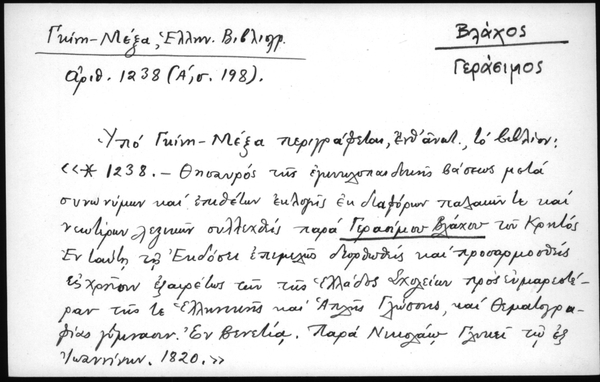 Γκίνη-Μέξα, Ἑλλην. Βιβλιογρ.
ἀριθ. 1238 (Α', σ. 198).
Βλάχος
Γεράσιμος
Ὑπό Γκίνη-Μέξα περιγράφεται, ἔνθ' ἀνωτ., τό βιβλίον:
«* 1238. – Θησαυρός τῆς ἐγκυκλοπαιδικῆς βάσεως μετά
συνωνύμων καί ἐπιθέτων ἐκλογῆς ἐκ διαφόρων παλαιῶν τε καί
νεωτέρων λεξικῶν συλλεχθείς παρά Γερασίμου Βλάχου τοῦ Κρητός
Ἐν ταύτῃ τῇ Ἐκδόσει ἐπιμελῶς διορθωθείς καί προσαρμοσθείς
εἰς χρῆσιν ἐξαιρέτως τῶν τῆς Ἑλλάδος Σχολείων πρός εὐμαρεστέ-
ραν τῆς τε Ἑλληνικῆς καί Ἁπλῆς Γλώσσης, καί Θεματογρα-
φίας γύμνασιν. Ἐν Βενετίᾳ. Παρά Νικολάῳ Γλυκεῖ τῷ ἐξ
Ἰωαννίνων. 1820.»